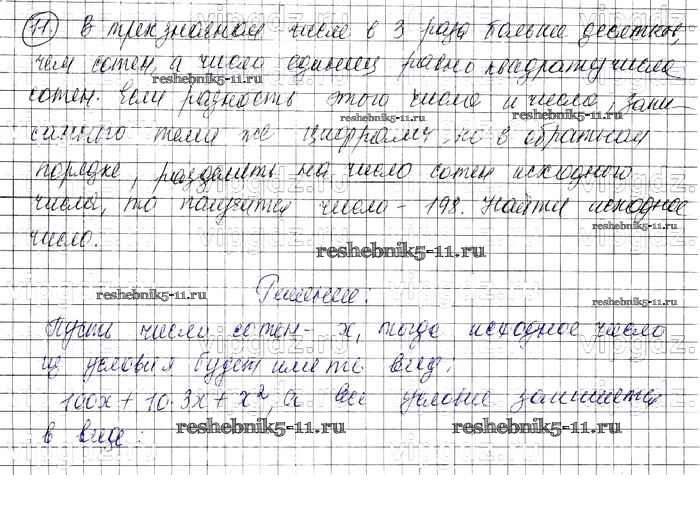 11. В трехзначном числе в 3 раза больше десятков,
чем сотен, а число единиц равно квадрату числа
reshebnik5-11.ru
сотен. Если разность этого числа и числа, запи-
reshebnik5-11.ru
санного теми же цифрами, но в обратном
порядке, разделить на число сотен исходного
числа, то получится число - 198. Найти исходное
число.
reshebnik5-11.ru
reshebnik5-11.ru
Решение:
reshebnik5-11.ru
Пусть число сотен - x, тогда исходное число
из условия будет иметь вид:
100x + 10·3x + x², а все условие запишется
в виде:
reshebnik5-11.ru
reshebnik5-11.ru